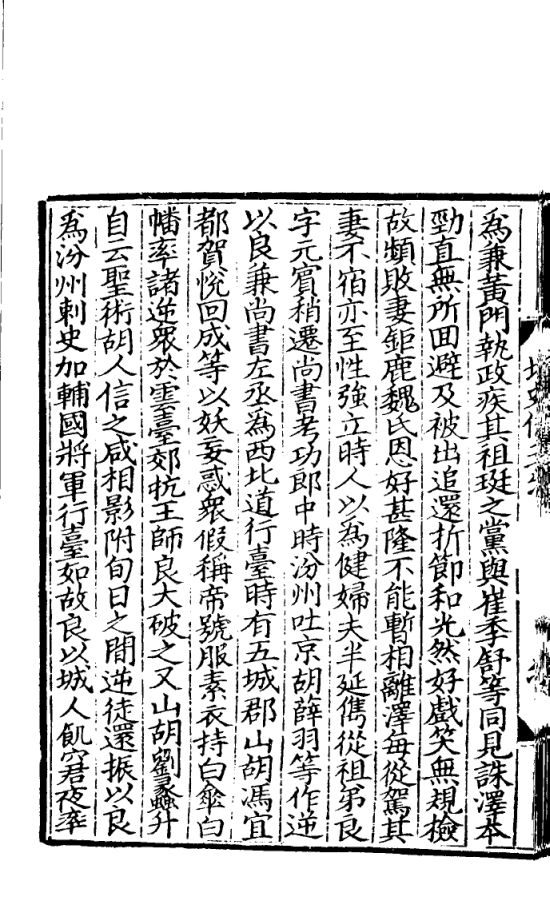 為兼黃門執政疾其祖珽之黨與崔季舒等同見誅澤本
勁直無所回避及被出追還折節和光然好戲笑無規檢
故頻敗妻鉅鹿魏氏恩好甚隆不能暫相離澤每從駕其
妻不宿亦至性強立時人以為健婦夫半延儁從祖弟良
字元賓稍遷尚書考功郎中時汾州吐京胡薛羽等作逆
以良兼尚書左丞為西北道行臺時有五城郡山胡馮宜
都賀悅回成等以妖妄惑衆假稱帝號服素衣持白傘白
幡率諸逆衆於雲臺郊抗王師良大破之又山胡劉蠡升
自云聖術胡人信之咸相影附旬日之間逆徒還振以良
為汾州刺史加輔國將軍行臺如故良以城人飢窘夜率